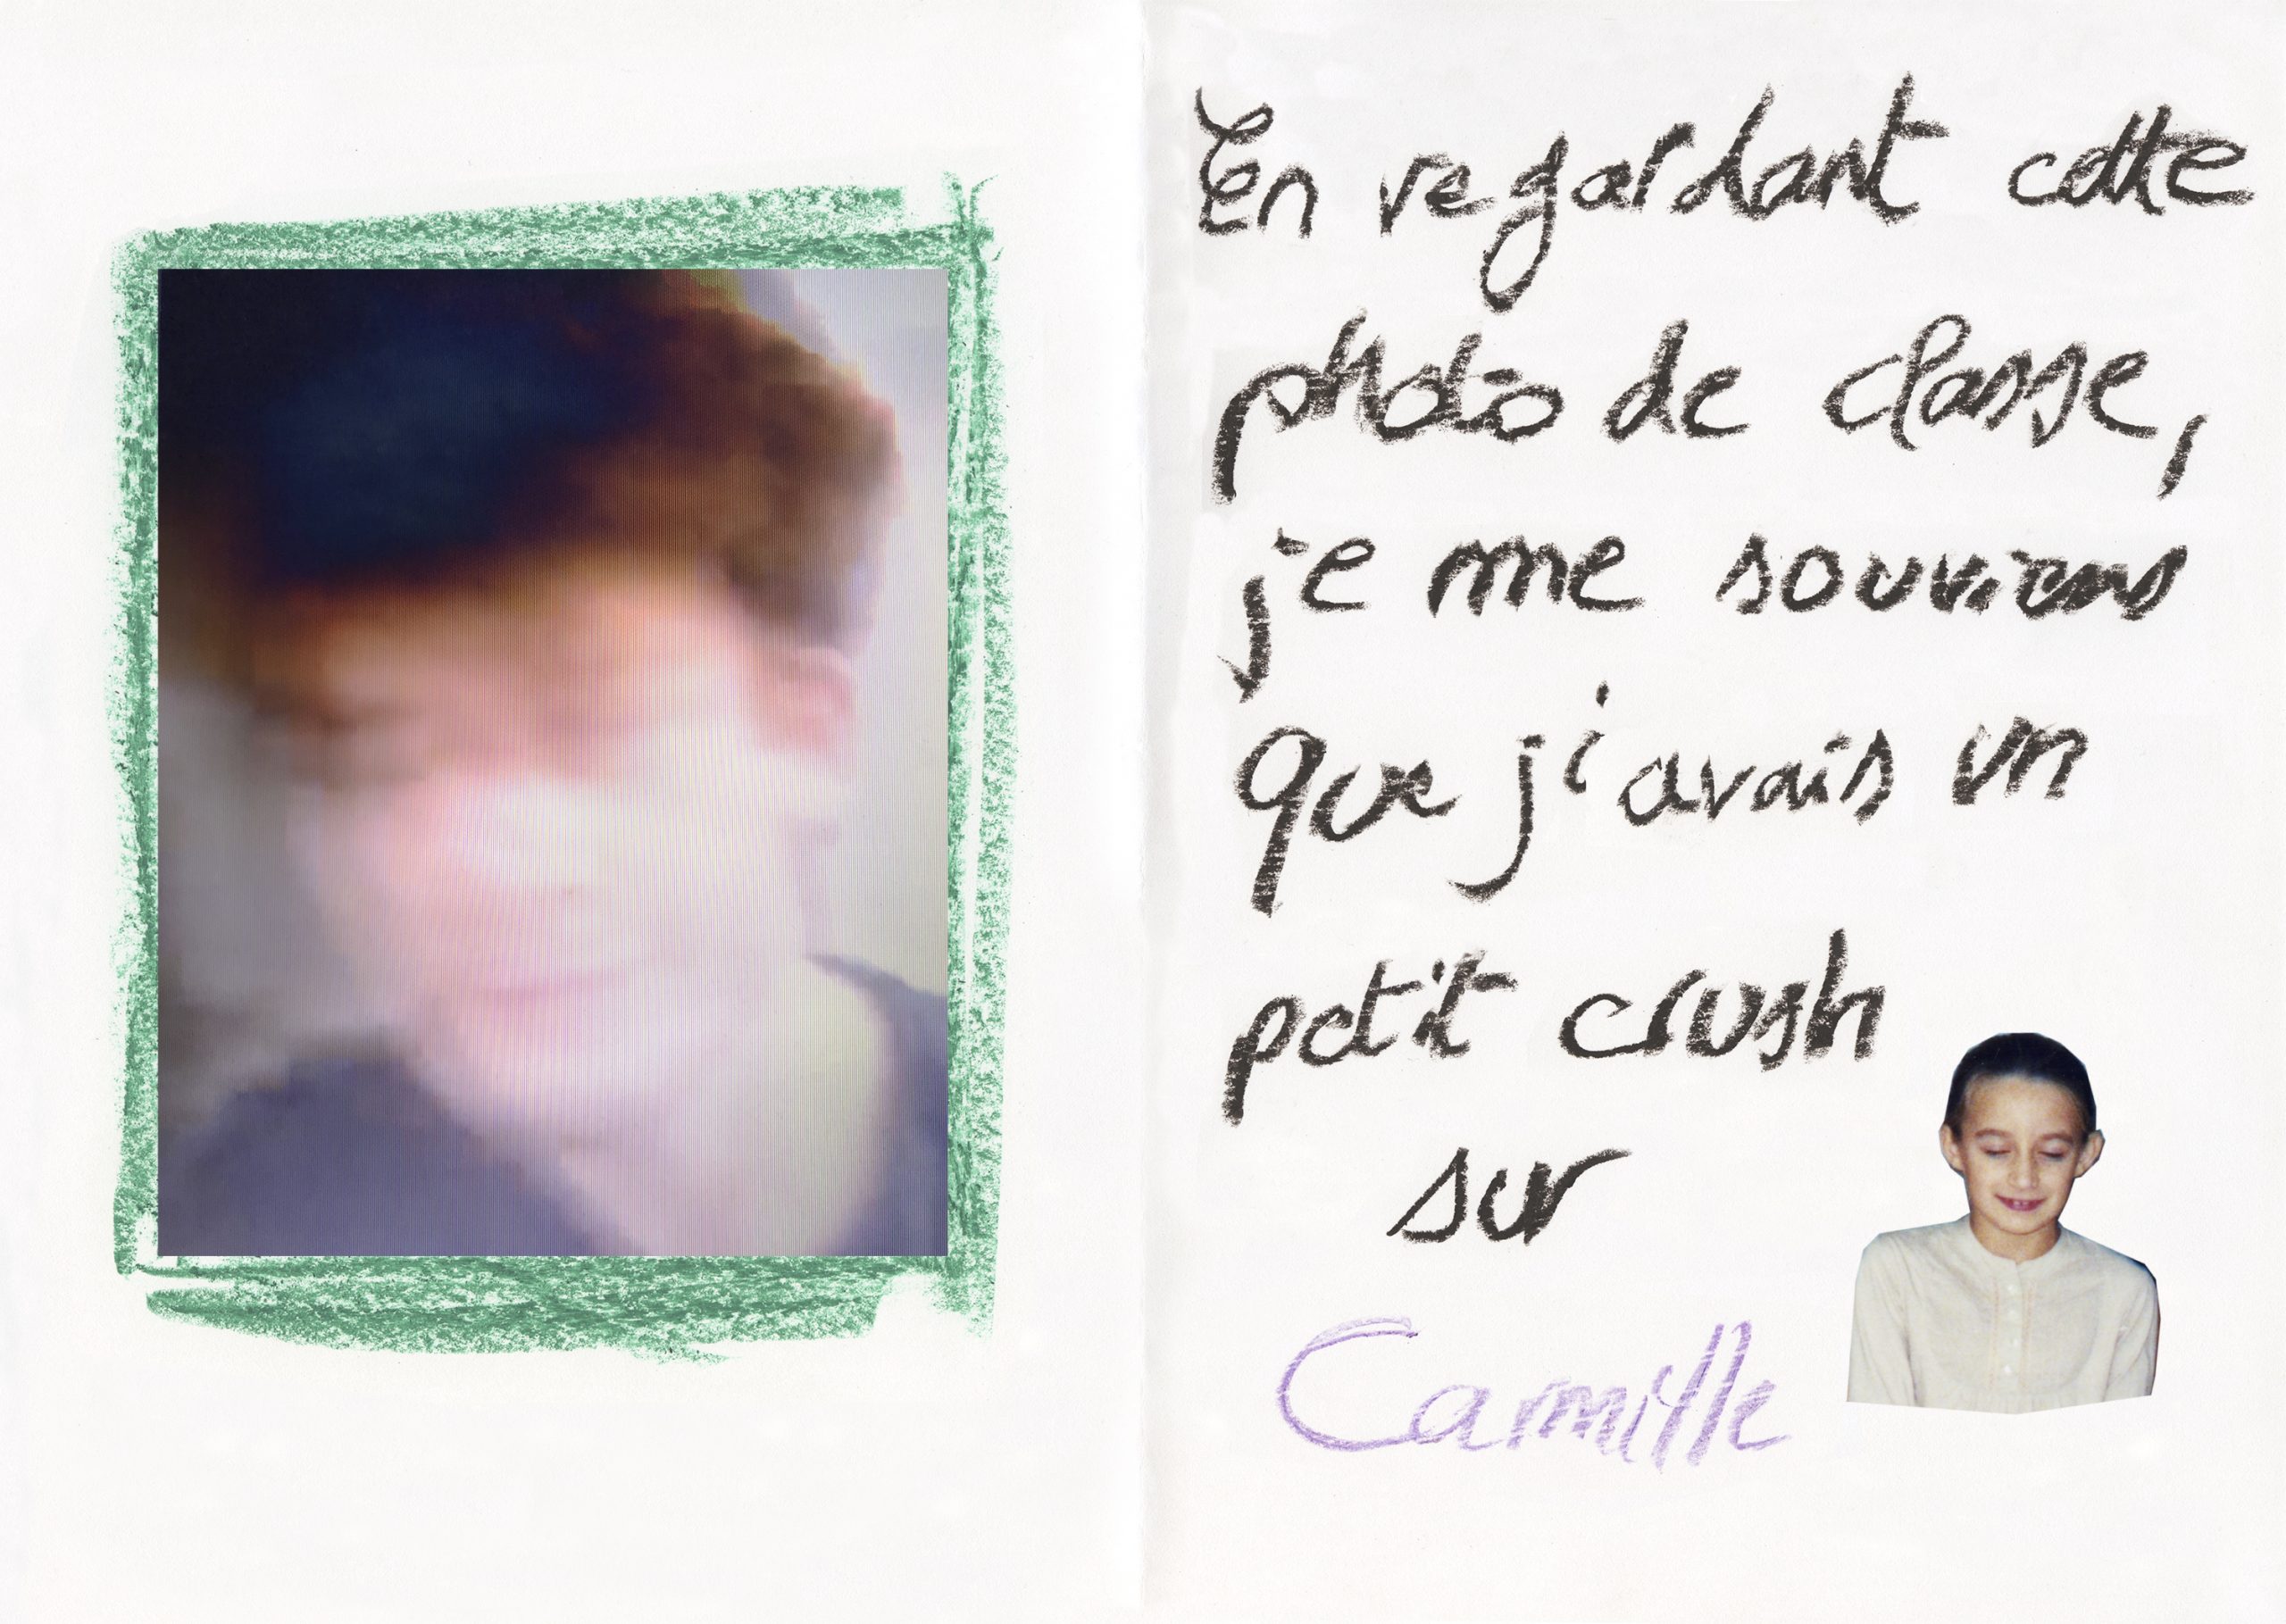 En regardant cette
photo de classe,
je me souviens
que j'avais un
petit crush
sur
Camille